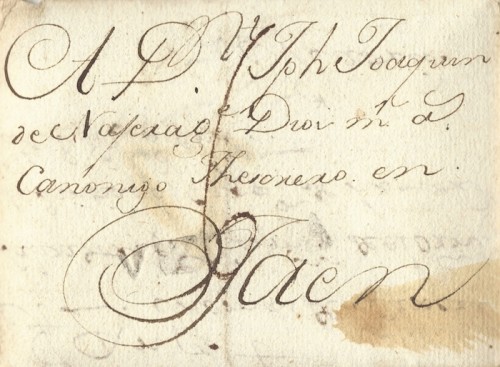 A Dn Jph Joaquin
de Naxera qe Dios ms as
Canonigo Thesorero en
Jaen